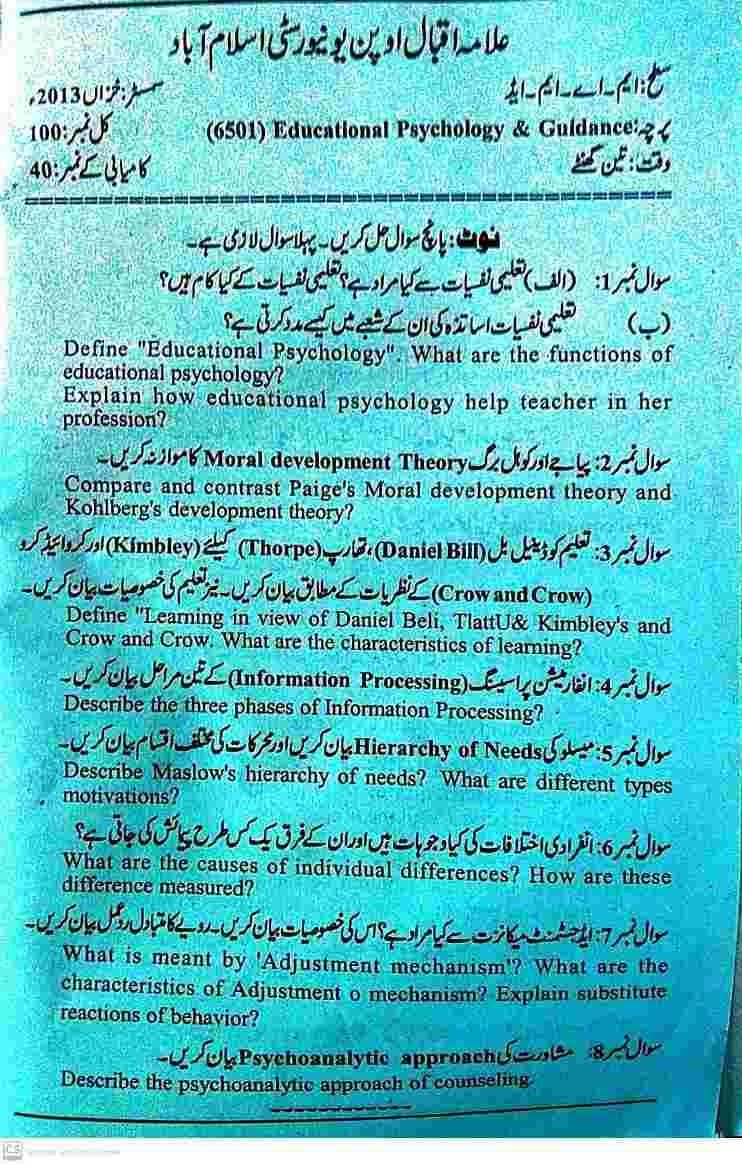 علامہ اقبال اوپن یونیورسٹی اسلام آباد
سطح: ایم۔اے۔ایم۔ایڈ سمسٹر: خزاں 2013ء
پرچہ: Educational Psychology & Guidance (6501) کل نمبر: 100
وقت: تین گھنٹے کامیابی کے نمبر: 40
نوٹ: پانچ سوال حل کریں۔ پہلا سوال لازمی ہے۔
سوال نمبر 1: (الف) تعلیمی نفسیات سے کیا مراد ہے؟ تعلیمی نفسیات کے کیا کام ہیں؟
(ب) تعلیمی نفسیات اساتذہ کی ان کے شعبے میں کیسے مدد کرتی ہے؟
Define "Educational Psychology". What are the functions of
educational psychology?
Explain how educational psychology help teacher in her
profession?
سوال نمبر 2: پیاجے اور کوہل برگ Moral development Theory کا موازنہ کریں۔
Compare and contrast Paige's Moral development theory and
Kohlberg's development theory?
سوال نمبر 3: تعلیم کو ڈینیل بل (Daniel Bill)، تھارپ (Thorpe) کیملے (Kimbley) اور کرو اینڈ کرو
(Crow and Crow) کے نظریات کے مطابق بیان کریں۔ نیز تعلیم کی خصوصیات بیان کریں۔
Define "Learning in view of Daniel Beli, TlattU& Kimbley's and
Crow and Crow. What are the characteristics of learning?
سوال نمبر 4: انفارمیشن پراسیسنگ (Information Processing) کے تین مراحل بیان کریں۔
Describe the three phases of Information Processing?
سوال نمبر 5: میسلو کی Hierarchy of Needs بیان کریں اور محرکات کی مختلف اقسام بیان کریں۔
Describe Maslow's hierarchy of needs? What are different types
motivations?
سوال نمبر 6: انفرادی اختلافات کی کیا وجوہات ہیں اور ان کے فرق یک کس طرح پیمائش کی جاتی ہے؟
What are the causes of individual differences? How are these
difference measured?
سوال نمبر 7: ایڈجسٹمنٹ میکانزت سے کیا مراد ہے؟ اس کی خصوصیات بیان کریں۔ رویے کا متبادل ردعمل بیان کریں۔
What is meant by 'Adjustment mechanism'? What are the
characteristics of Adjustment o mechanism? Explain substitute
reactions of behavior?
سوال نمبر 8: مشاورت کی Psychoanalytic approach بیان کریں۔
Describe the psychoanalytic approach of counseling.
CS